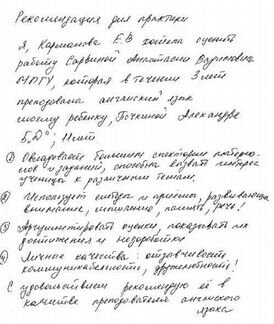 Рекомендация для практики
Я, Карманова Е.В хотела оценить
работу Сарвиной Анастасии Вадимовны
МПГУ, которая в течении 3 лет
преподавала английский язык
моему ребёнку, Почкиной Александре
5 „Д", 11 лет
① Обладает большим спектором материа-
лов и заданий, способна вызвать интерес
ученицы к различным темам.
② Использует методы и приёмы, развивающие
внимание, мышление, память, речь!
③ Аргументировать оценки, показывать их
достижения и недоработки
④ Личные качества: отзывчивость,
коммуникательность, дружелюбность!
С удовольствием рекомендую её в
качестве преподавателя английского
языка